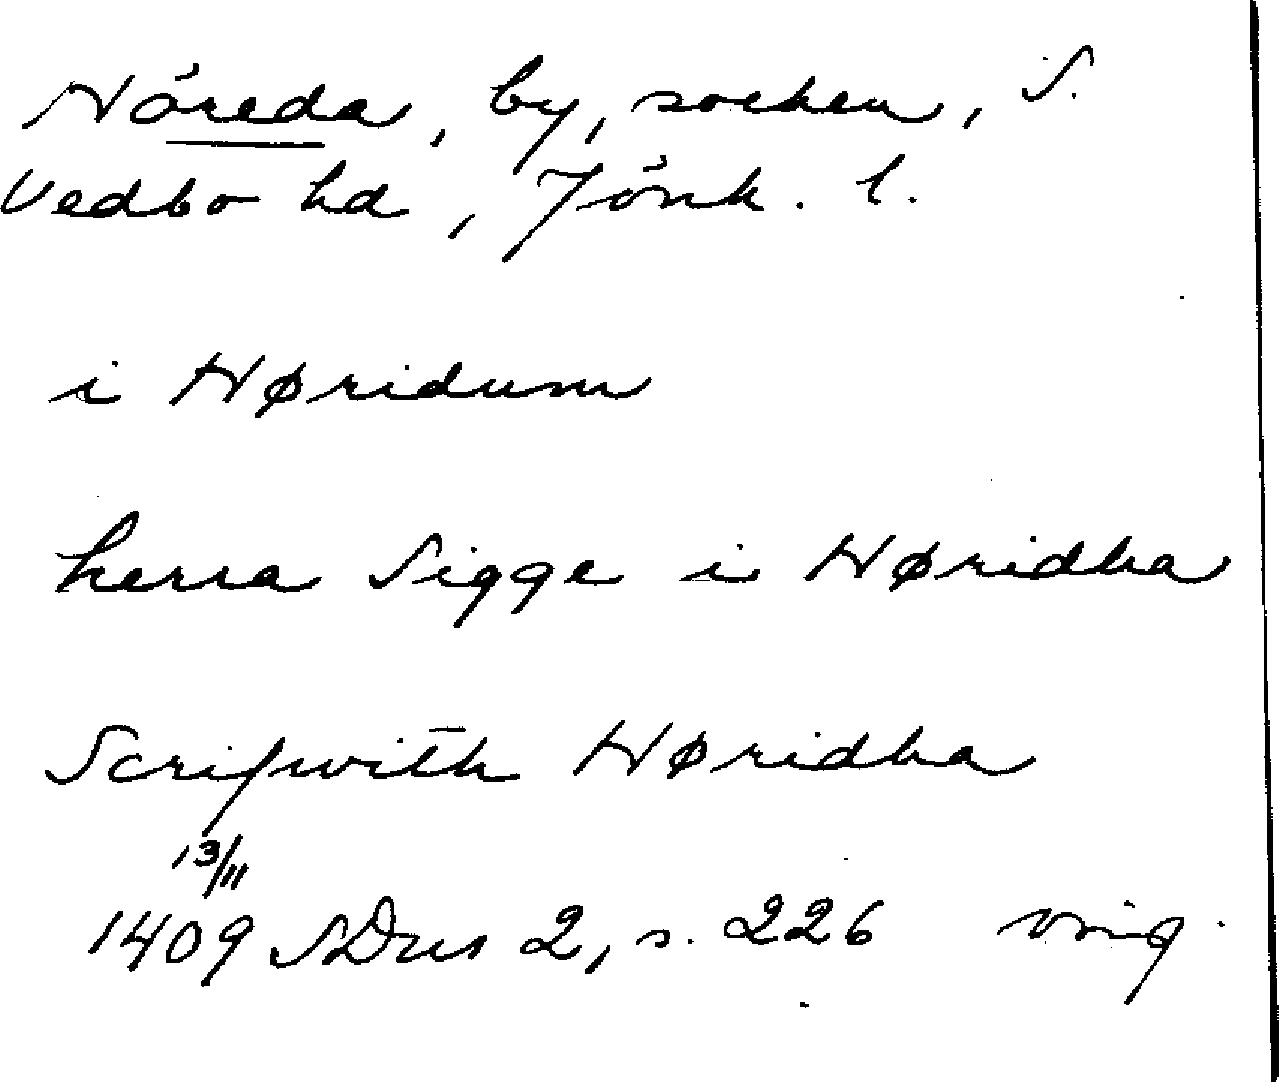 Höreda, by, socken, S.
Vedbo hd, Jönk. l.
i Høridum
herra Sigge i Høridha
Scrifwith Høridha
13/11
1409 SDns 2, s. 226 orig.